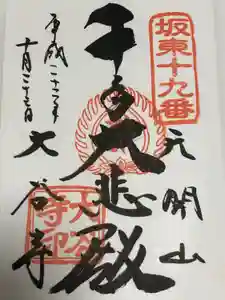 坂東十九番
元開山
千手大悲殿
大谷寺
平成二十二年
十月二十三日
大谷寺印